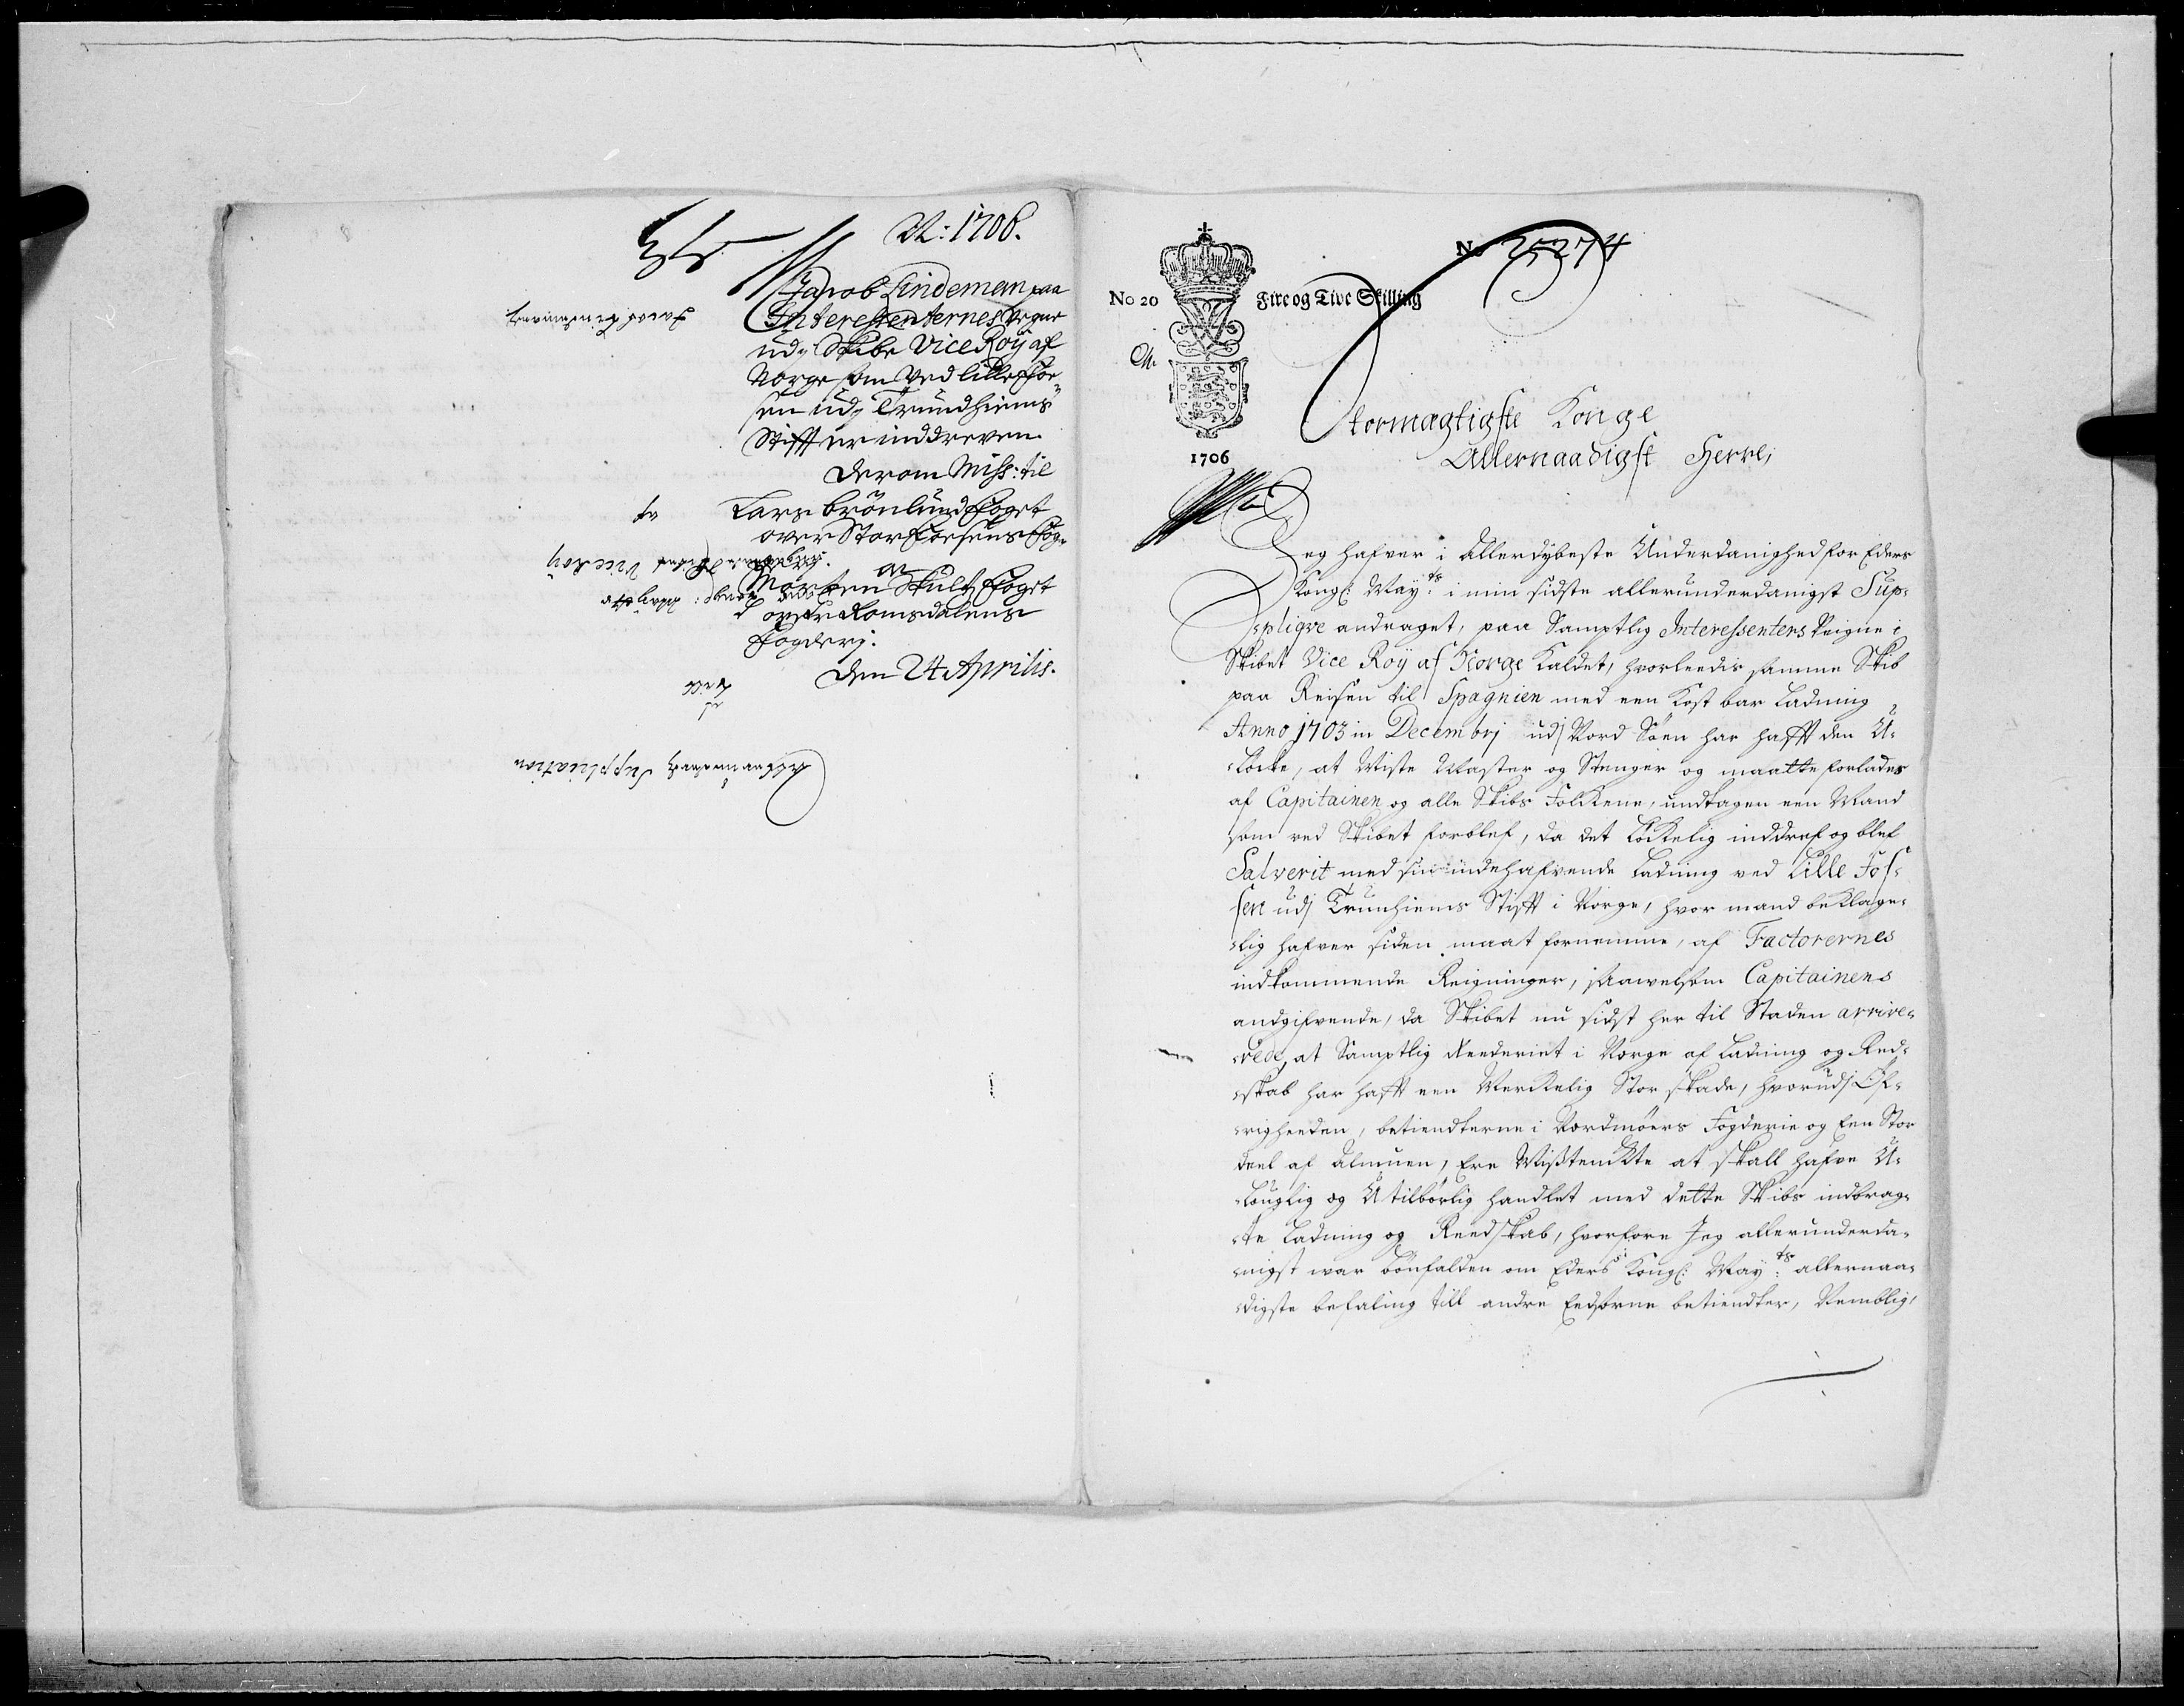 N: 1706.
Jacob Lindeman paa
Interessenternes Vegne
udj Skibe Vice Roÿ af
Norge som Ved lille Foe¬
sen udj Trundhiems
Stifft er inddreven.
Derom Miss: til
Lars Brönlund Foget
over Stor Foesens Fog¬
derj.
Morten Skultz Foget
over Romsdalens
Fogderj.
Den 24 Aprilis.
Allerunderdanigst Supplication
Vice Roy
No 25274
No 20
Fire og Tive Skilling
1706
Stormagtigste Konge
Allernaadigst Herre,
Jeg hafver i Allerdybeste Underdanighed for Eders
Kongl: May:ts i min sidste allerunderdanigst Sup¬
pliqve andraget, paa Samptlig Interessenters Veigne i
Skibet Vice Roÿ af Norge Kaldet, hvorleedis samme Skib
paa Reisen til Spagnien med een Kost bar Ladning
Anno 1703 in Decembrj udj Nord Söen har hafft den U¬
löcke, at Miste Master og Stenger og maatte forlades
af Capitainen og alle Skibs Folkene, undtagen een Mand
som ved Skibet forblef, da det Löckelig inddref og blef
Salverit med sin indehafvende Ladning ved Lille Fos¬
sen udj Trunhiems Stifft i Norge, hvor mand beklage¬
lig hafver siden maat fornemme, af Factorernes
indkommende Reigninger, saavelsom Capitainens
andgifvende, da Skibet nu sidst her til Staden arrive¬
rede, at Samptlig Reederiet i Norge af Ladning og Red¬
skab har hafft een Merkelig Stor skade, hvorudj Öf¬
righeeden, betiendterne i Nordmöers Fogderie og Een Stor
deel af Almuen, Ere Mistenckte at skall hafve U¬
louglig og Utilbörlig handlet med dette Skibs indbrag¬
te Ladning og Reedskab, hvorfore Jeg allerunderda¬
nigst war bönfalden om Eders Kongl: May:ts allernaa¬
digste befaling till andre Eedsorne betiendter, Nemblig,